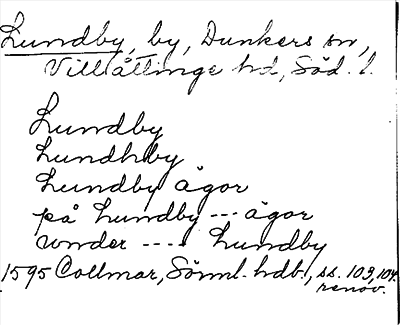 Lundby, by, Dunkers sn,
Villåttinge hd, Söd. l.
Lundby
Lundhby
Lundby ägor
på Lundby --- ägor
wnder ---- Lundby
1595 Collmar, Sörml. hdb., ss. 103, 104.
renov.